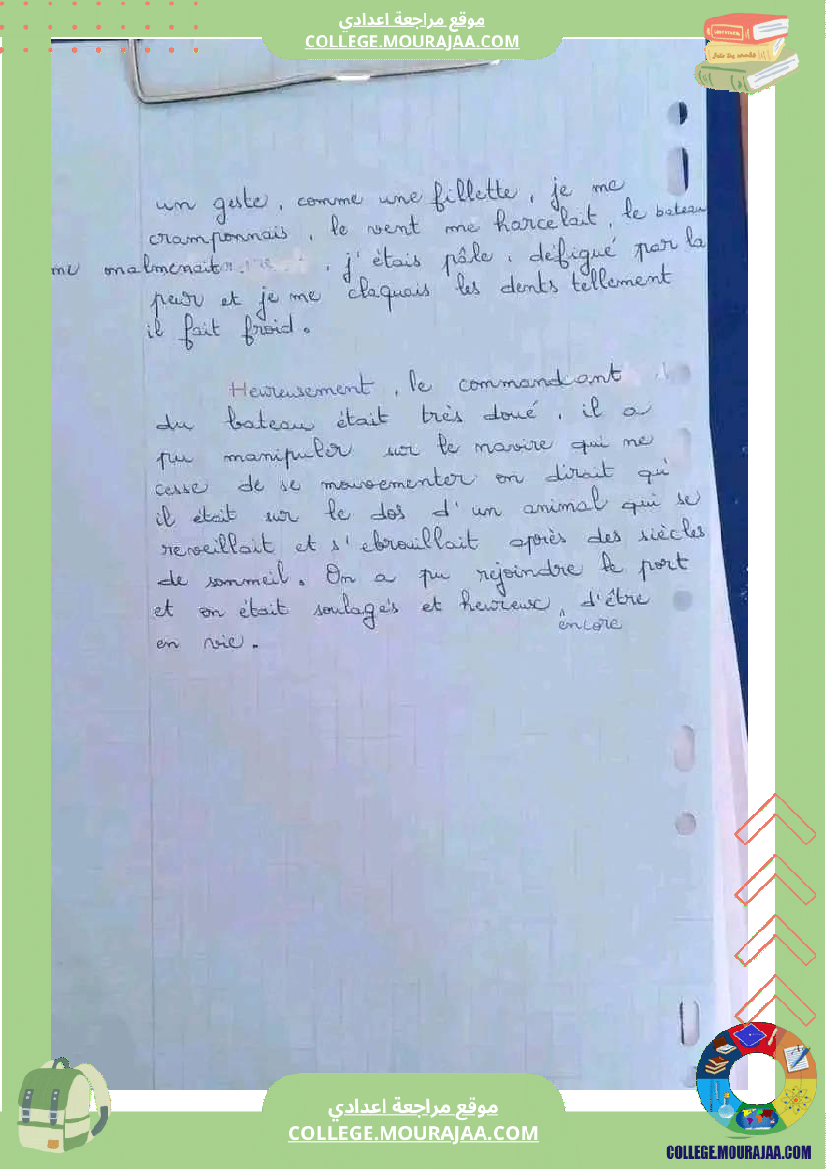 موقع مراجعة اعدادي
COLLEGE.MOURAJAA.COM
un geste, comme une fillette, je me
cramponnais, le vent me harcelait, le bateau
me malmenait, j'étais pâle, défigué par la
peur et je me claquais les dents tellement
il fait froid.
Heureusement, le commandant
du bateau était très doué, il a
pu manipuler sur le navire qui ne
cesse de se mouvementer on dirait qu'
il était sur le dos d'un animal qui se
reveillait et s'ebrouillait après des siècles
de sommeil. On a pu rejoindre le port
et on était soulagés et heureux d'être
encore
en vie.
موقع مراجعة اعدادي
COLLEGE.MOURAJAA.COM
COLLEGE.MOURAJAA.COM